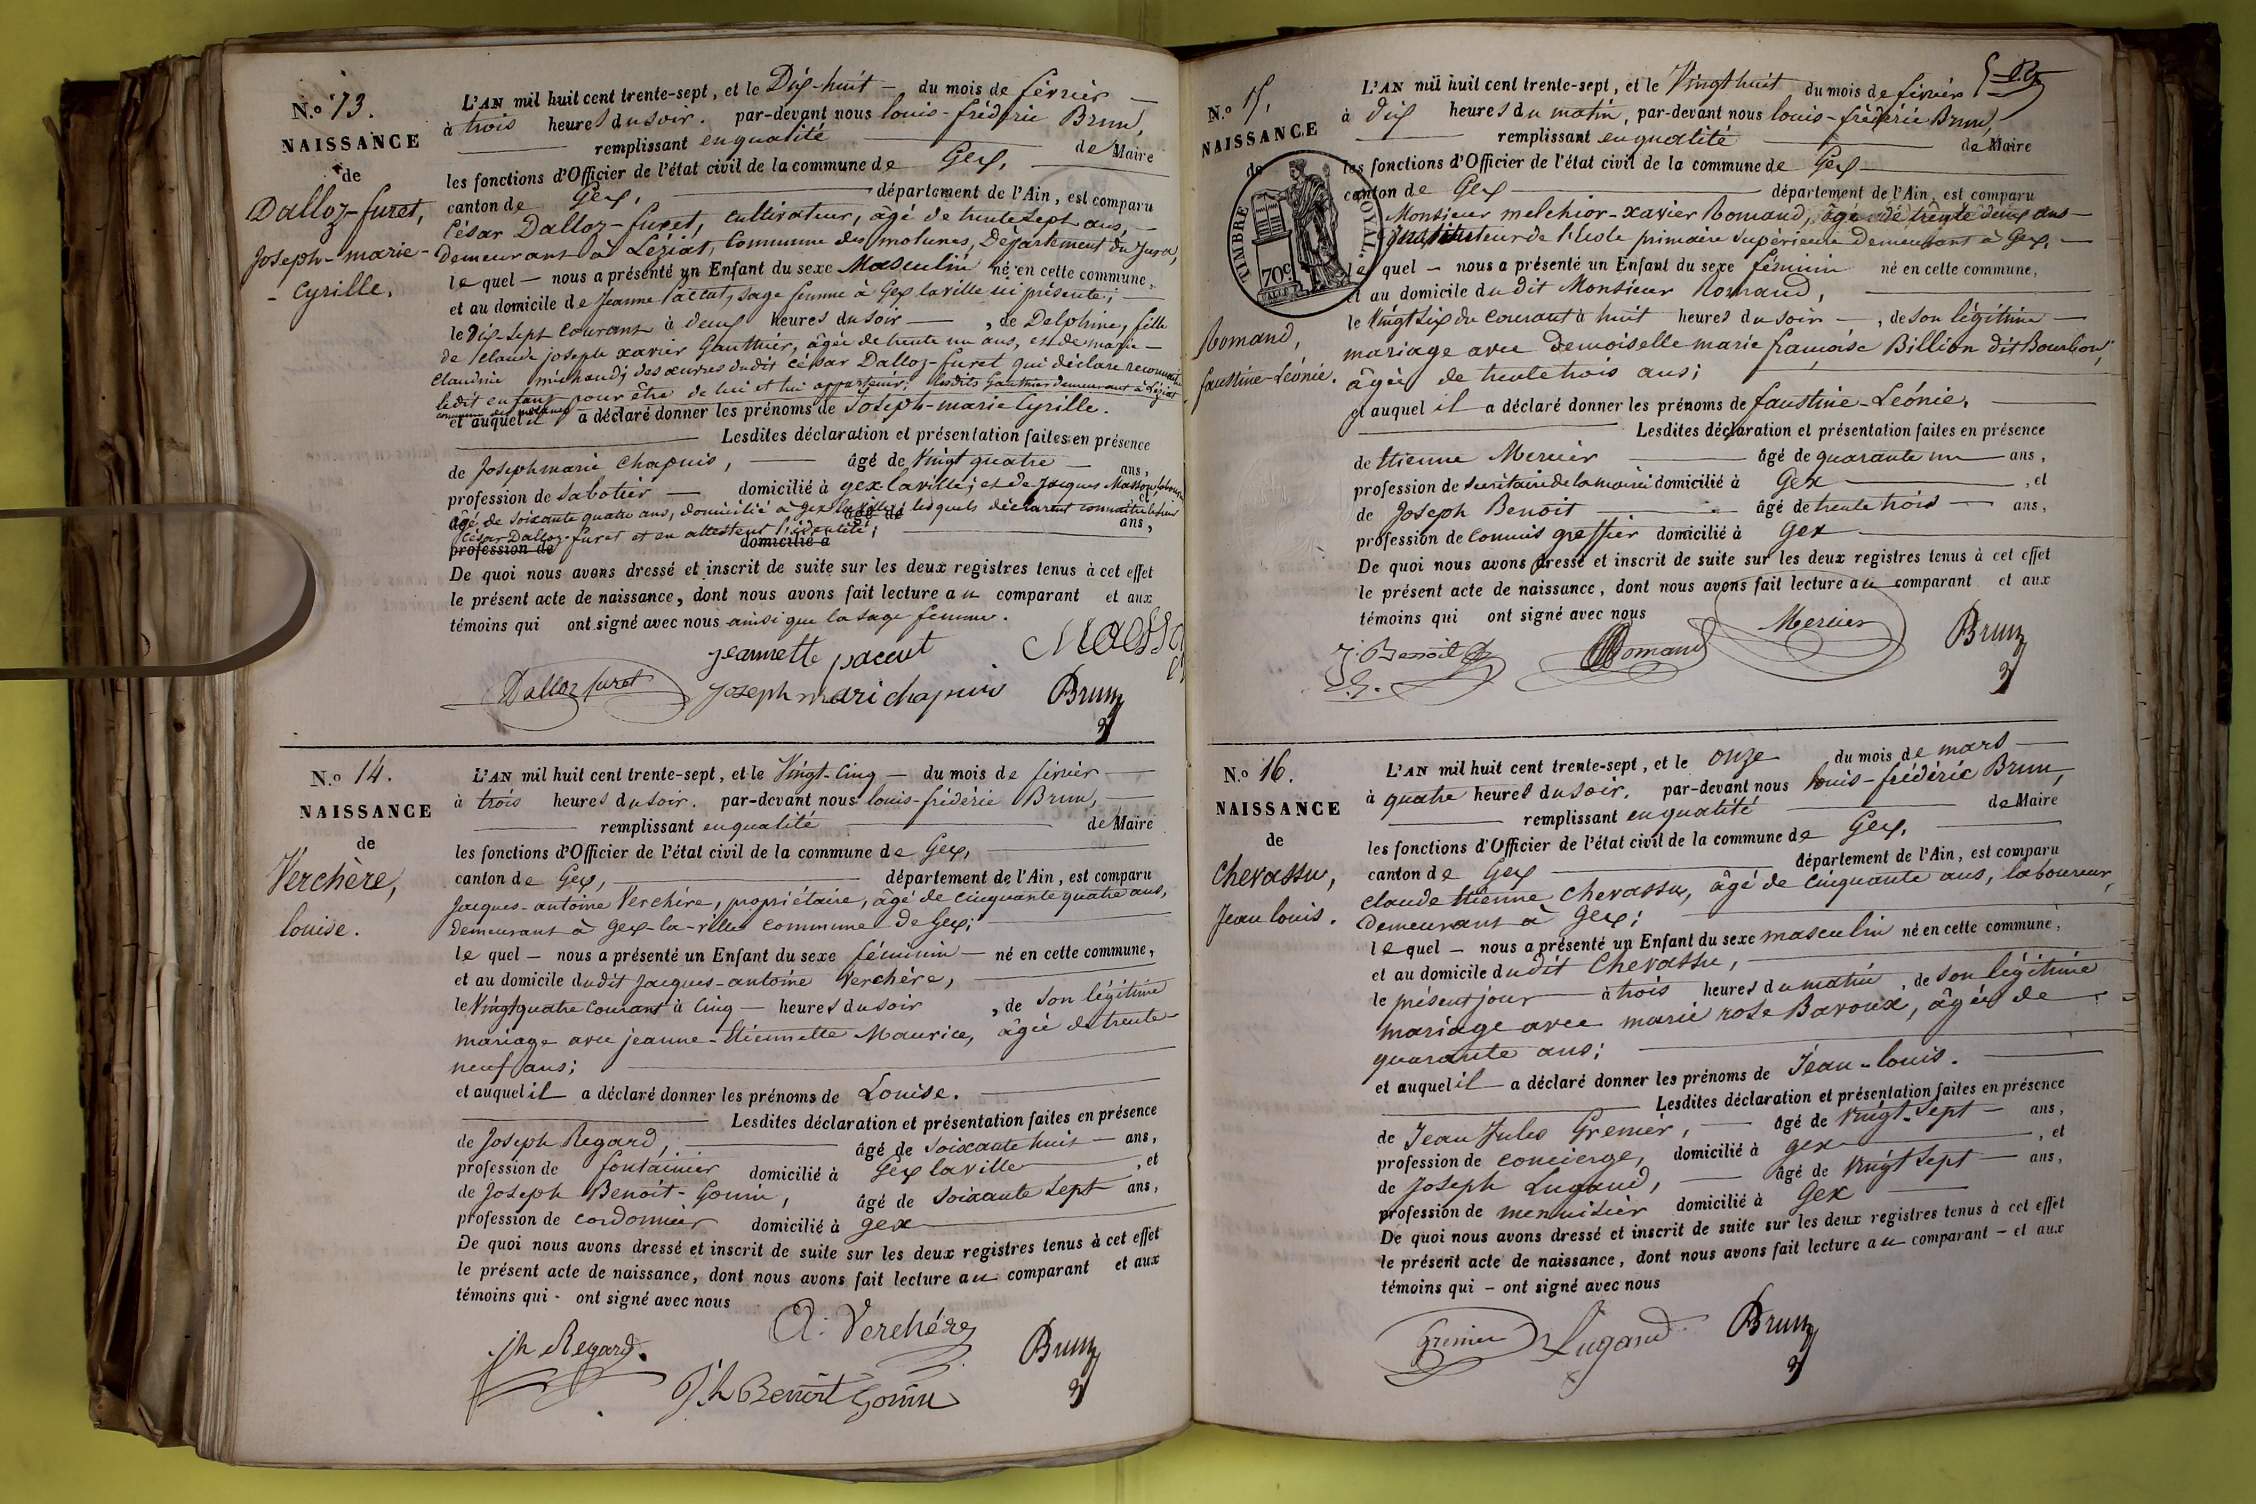 N.o 13.
NAISSANCE
de
Dalloz-furet,
Joseph-marie-
-Cyrille.
L'AN mil huit cent trente-sept, et le Dix-huit — du mois de février —
à trois heures du soir. par-devant nous louis-frédéric Brun,
remplissant en qualité de Maire
les fonctions d'Officier de l'état civil de la commune de Gex,
canton de Gex, département de l'Ain, est comparu
César Dalloz-furet, cultivateur, âgé de trente sept ans,
demeurant à Léziat, Commune des molunes, Département du Jura,
le quel — nous a présenté un Enfant du sexe Masculin né en cette commune,
et au domicile de Jeanne Paccut, sage femme à Gex la ville ici présente;
le dix-sept courant à deux heures du soir —, de Delphine, fille
de claude joseph xavier Gauthier, âgée de trente un ans, et de marie-
Claudine michaud; des œuvres dudit césar Dalloz-furet qui déclare reconnaître
ledit enfant pour être de lui et lui appartenir; lesdits Gauthier demeurant à Léziat
commune des molunes
et auquel il a déclaré donner les prénoms de Joseph-marie Cyrille.
Lesdites déclaration et présentation faites en présence
de Joseph marie Chapuis, — âgé de Vingt quatre — ans,
profession de Sabotier — domicilié à gex la ville; et de Jacques Masson, laboureur
âgé de soixante quatre ans, domicilié à gex la ville; lesquels déclarent connaître ledit
César Dalloz-furet et en attestent l'identité; ans,
profession de domicilié à
De quoi nous avons dressé et inscrit de suite sur les deux registres tenus à cet effet
le présent acte de naissance, dont nous avons fait lecture au comparant et aux
témoins qui ont signé avec nous ainsi que la sage femme.
jeannette paccut
Dalloz furet Joseph mari chapuis Brun
N.o 14.
NAISSANCE
de
Verchère,
louise.
L'AN mil huit cent trente-sept, et le Vingt-cinq — du mois de février —
à trois heures du soir. par-devant nous louis-frédéric Brun, —
remplissant en qualité de Maire
les fonctions d'Officier de l'état civil de la commune de Gex,
canton de Gex, département de l'Ain, est comparu
Jacques-antoine Verchère, propriétaire, âgé de cinquante quatre ans,
demeurant à Gex-la-ville commune de Gex;
le quel — nous a présenté un Enfant du sexe féminin — né en cette commune,
et au domicile dudit Jacques-antoine Verchère,
le Vingt quatre courant à cinq — heures du soir, de son légitime
mariage avec jeanne-Etiennette Maurice, âgée de trente-
neuf ans;
et auquel il — a déclaré donner les prénoms de Louise.
Lesdites déclaration et présentation faites en présence
de Joseph Regard, âgé de soixante huit — ans,
profession de fontainier domicilié à Gex la ville, et
de Joseph Benoit-Gonin, âgé de soixante sept ans,
profession de cordonnier domicilié à gex
De quoi nous avons dressé et inscrit de suite sur les deux registres tenus à cet effet
le présent acte de naissance, dont nous avons fait lecture au comparant et aux
témoins qui - ont signé avec nous
A. Verchère
jh Regard. Brun
Jh Benoit Gonin
N.o 15.
NAISSANCE
de
TIMBRE ROYAL.
70c.
Romand,
faustine-Léonie.
L'AN mil huit cent trente-sept, et le Vingt huit du mois de février
à dix heures du matin, par-devant nous louis-frédéric Brun,
remplissant en qualité de Maire
les fonctions d'Officier de l'état civil de la commune de Gex
canton de Gex département de l'Ain, est comparu
Monsieur melchior-xavier Romand, âgé de trente deux ans —
Instituteur de l'école primaire supérieure demeurant à Gex. —
le quel — nous a présenté un Enfant du sexe féminin né en cette commune,
et au domicile dudit Monsieur Romand,
le Vingt six du courant à huit heures du soir —, de son légitime —
mariage avec demoiselle marie françoise Billion dit Bourbon,
âgée de trente trois ans;
et auquel il — a déclaré donner les prénoms de faustine-Léonie.
Lesdites déclaration et présentation faites en présence
de Etienne Mercier âgé de quarante un — ans,
profession de secrétaire de la mairie domicilié à Gex, et
de Joseph Benoit âgé de trente trois — ans,
profession de commis greffier domicilié à Gex
De quoi nous avons dressé et inscrit de suite sur les deux registres tenus à cet effet
le présent acte de naissance, dont nous avons fait lecture au comparant et aux
témoins qui ont signé avec nous
J. Benoit Romand Mercier Brun
N.o 16.
NAISSANCE
de
Chevassu,
Jean louis.
L'AN mil huit cent trente-sept, et le onze du mois de mars —
à quatre heures du soir. par-devant nous louis-frédéric Brun,
remplissant en qualité de Maire
les fonctions d'Officier de l'état civil de la commune de Gex.
canton de Gex département de l'Ain, est comparu
claude Etienne Chevassu, âgé de cinquante ans, laboureur,
demeurant à Gex;
le quel — nous a présenté un Enfant du sexe masculin né en cette commune,
et au domicile dudit Chevassu,
le présent jour — à trois heures du matin, de son légitime
mariage avec marie rose Baroux, âgée de —
quarante ans;
et auquel il — a déclaré donner les prénoms de Jean-louis.
Lesdites déclaration et présentation faites en présence
de Jean Jules Grenier, — âgé de Vingt-sept — ans,
profession de concierge, domicilié à gex, et
de Joseph Lugand, — âgé de Vingt sept — ans,
profession de menuisier domicilié à Gex
De quoi nous avons dressé et inscrit de suite sur les deux registres tenus à cet effet
le présent acte de naissance, dont nous avons fait lecture au comparant — et aux
témoins qui — ont signé avec nous
Grenier Lugand Brun